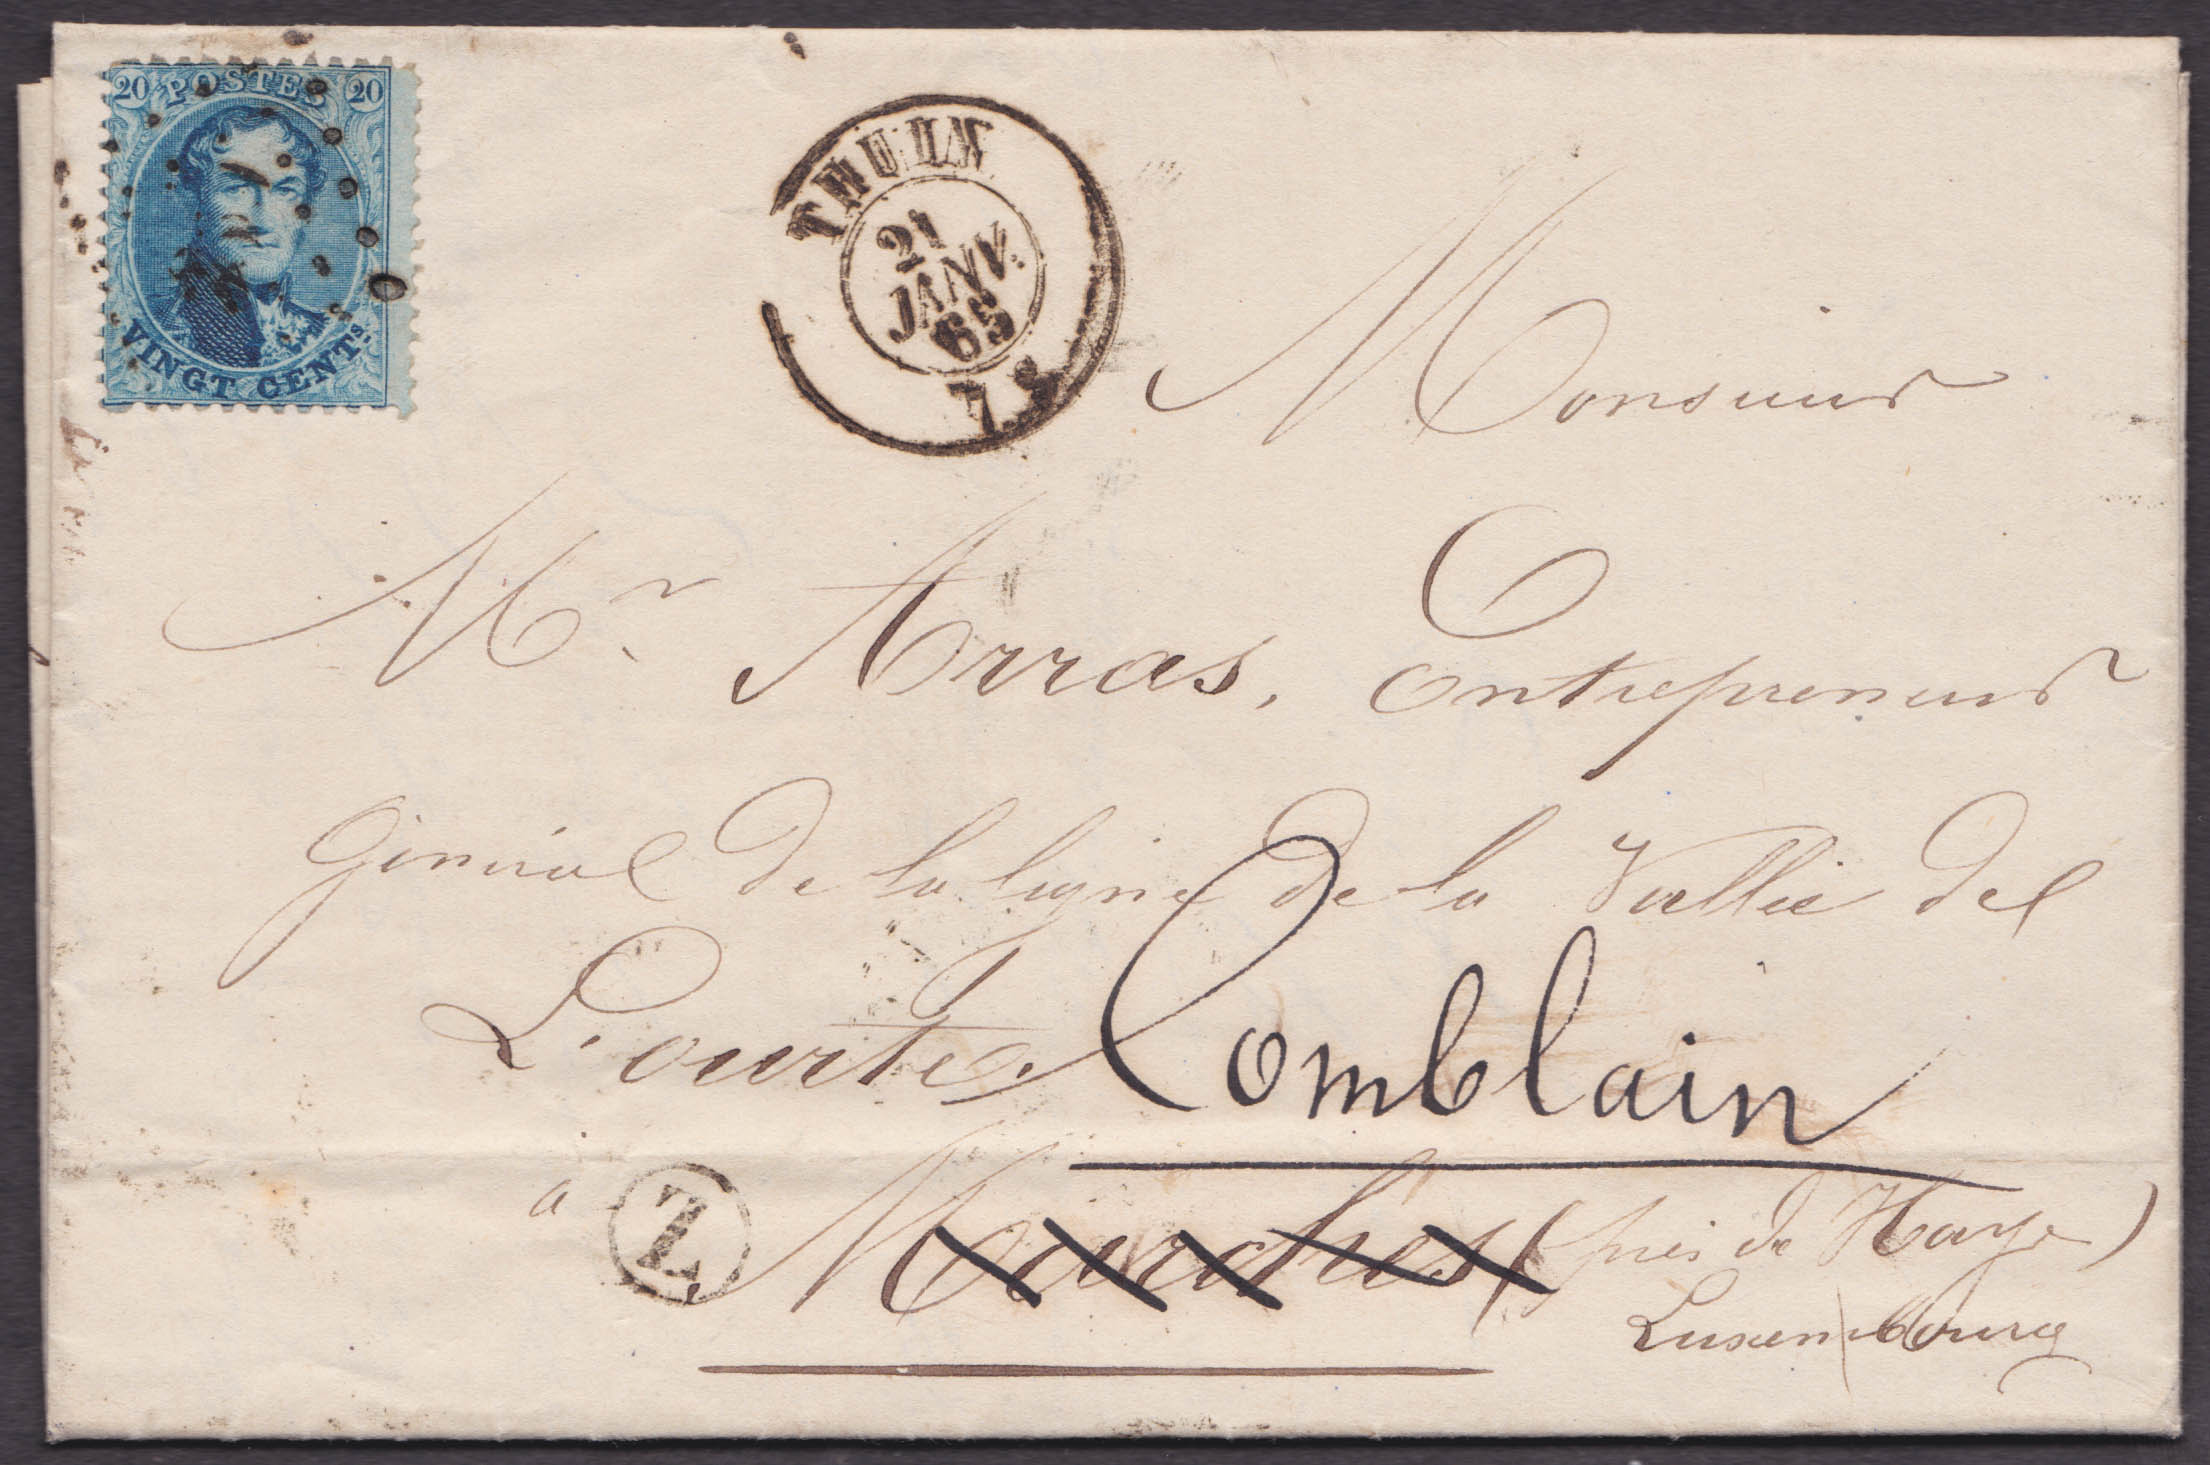 20 POSTES 20
VINGT CENTS.
THUIN
21
JANV.
65
7 S
Monsieur
Mr. Arras, Entrepreneur
Général de la ligne de la Vallée del
L'ourte.
Comblain
à Z Marches (près de Haye)
Luxembourg